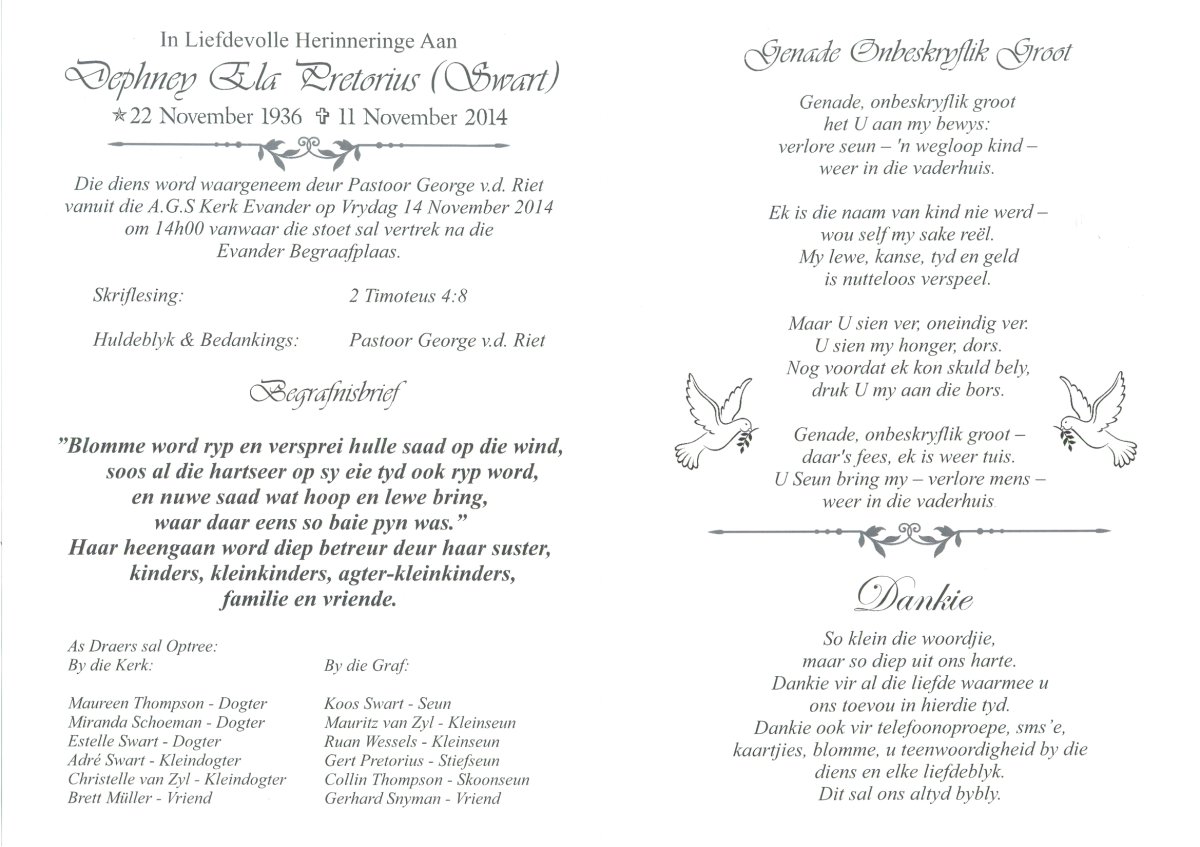 In Liefdevolle Herinneringe Aan
Dephney Ela Pretorius (Swart)
✯22 November 1936 ✞ 11 November 2014
Die diens word waargeneem deur Pastoor George v.d. Riet
vanuit die A.G.S Kerk Evander op Vrydag 14 November 2014
om 14h00 vanwaar die stoet sal vertrek na die
Evander Begraafplaas.
Skriflesing: 2 Timoteus 4:8
Huldeblyk & Bedankings: Pastoor George v.d. Riet
Begrafnisbrief
”Blomme word ryp en versprei hulle saad op die wind,
soos al die hartseer op sy eie tyd ook ryp word,
en nuwe saad wat hoop en lewe bring,
waar daar eens so baie pyn was.”
Haar heengaan word diep betreur deur haar suster,
kinders, kleinkinders, agter-kleinkinders,
familie en vriende.
As Draers sal Optree:
By die Kerk:
Maureen Thompson - Dogter
Miranda Schoeman - Dogter
Estelle Swart - Dogter
Adré Swart - Kleindogter
Christelle van Zyl - Kleindogter
Brett Müller - Vriend
By die Graf:
Koos Swart - Seun
Mauritz van Zyl - Kleinseun
Ruan Wessels - Kleinseun
Gert Pretorius - Stiefseun
Collin Thompson - Skoonseun
Gerhard Snyman - Vriend
Genade Onbeskryflik Groot
Genade, onbeskryflik groot
het U aan my bewys:
verlore seun – 'n wegloop kind –
weer in die vaderhuis.
Ek is die naam van kind nie werd –
wou self my sake reël.
My lewe, kanse, tyd en geld
is nutteloos verspeel.
Maar U sien ver, oneindig ver.
U sien my honger, dors.
Nog voordat ek kon skuld bely,
druk U my aan die bors.
Genade, onbeskryflik groot –
daar's fees, ek is weer tuis.
U Seun bring my – verlore mens –
weer in die vaderhuis
Dankie
So klein die woordjie,
maar so diep uit ons harte.
Dankie vir al die liefde waarmee u
ons toevou in hierdie tyd.
Dankie ook vir telefoonoproepe, sms’e,
kaartjies, blomme, u teenwoordigheid by die
diens en elke liefdeblyk.
Dit sal ons altyd bybly.